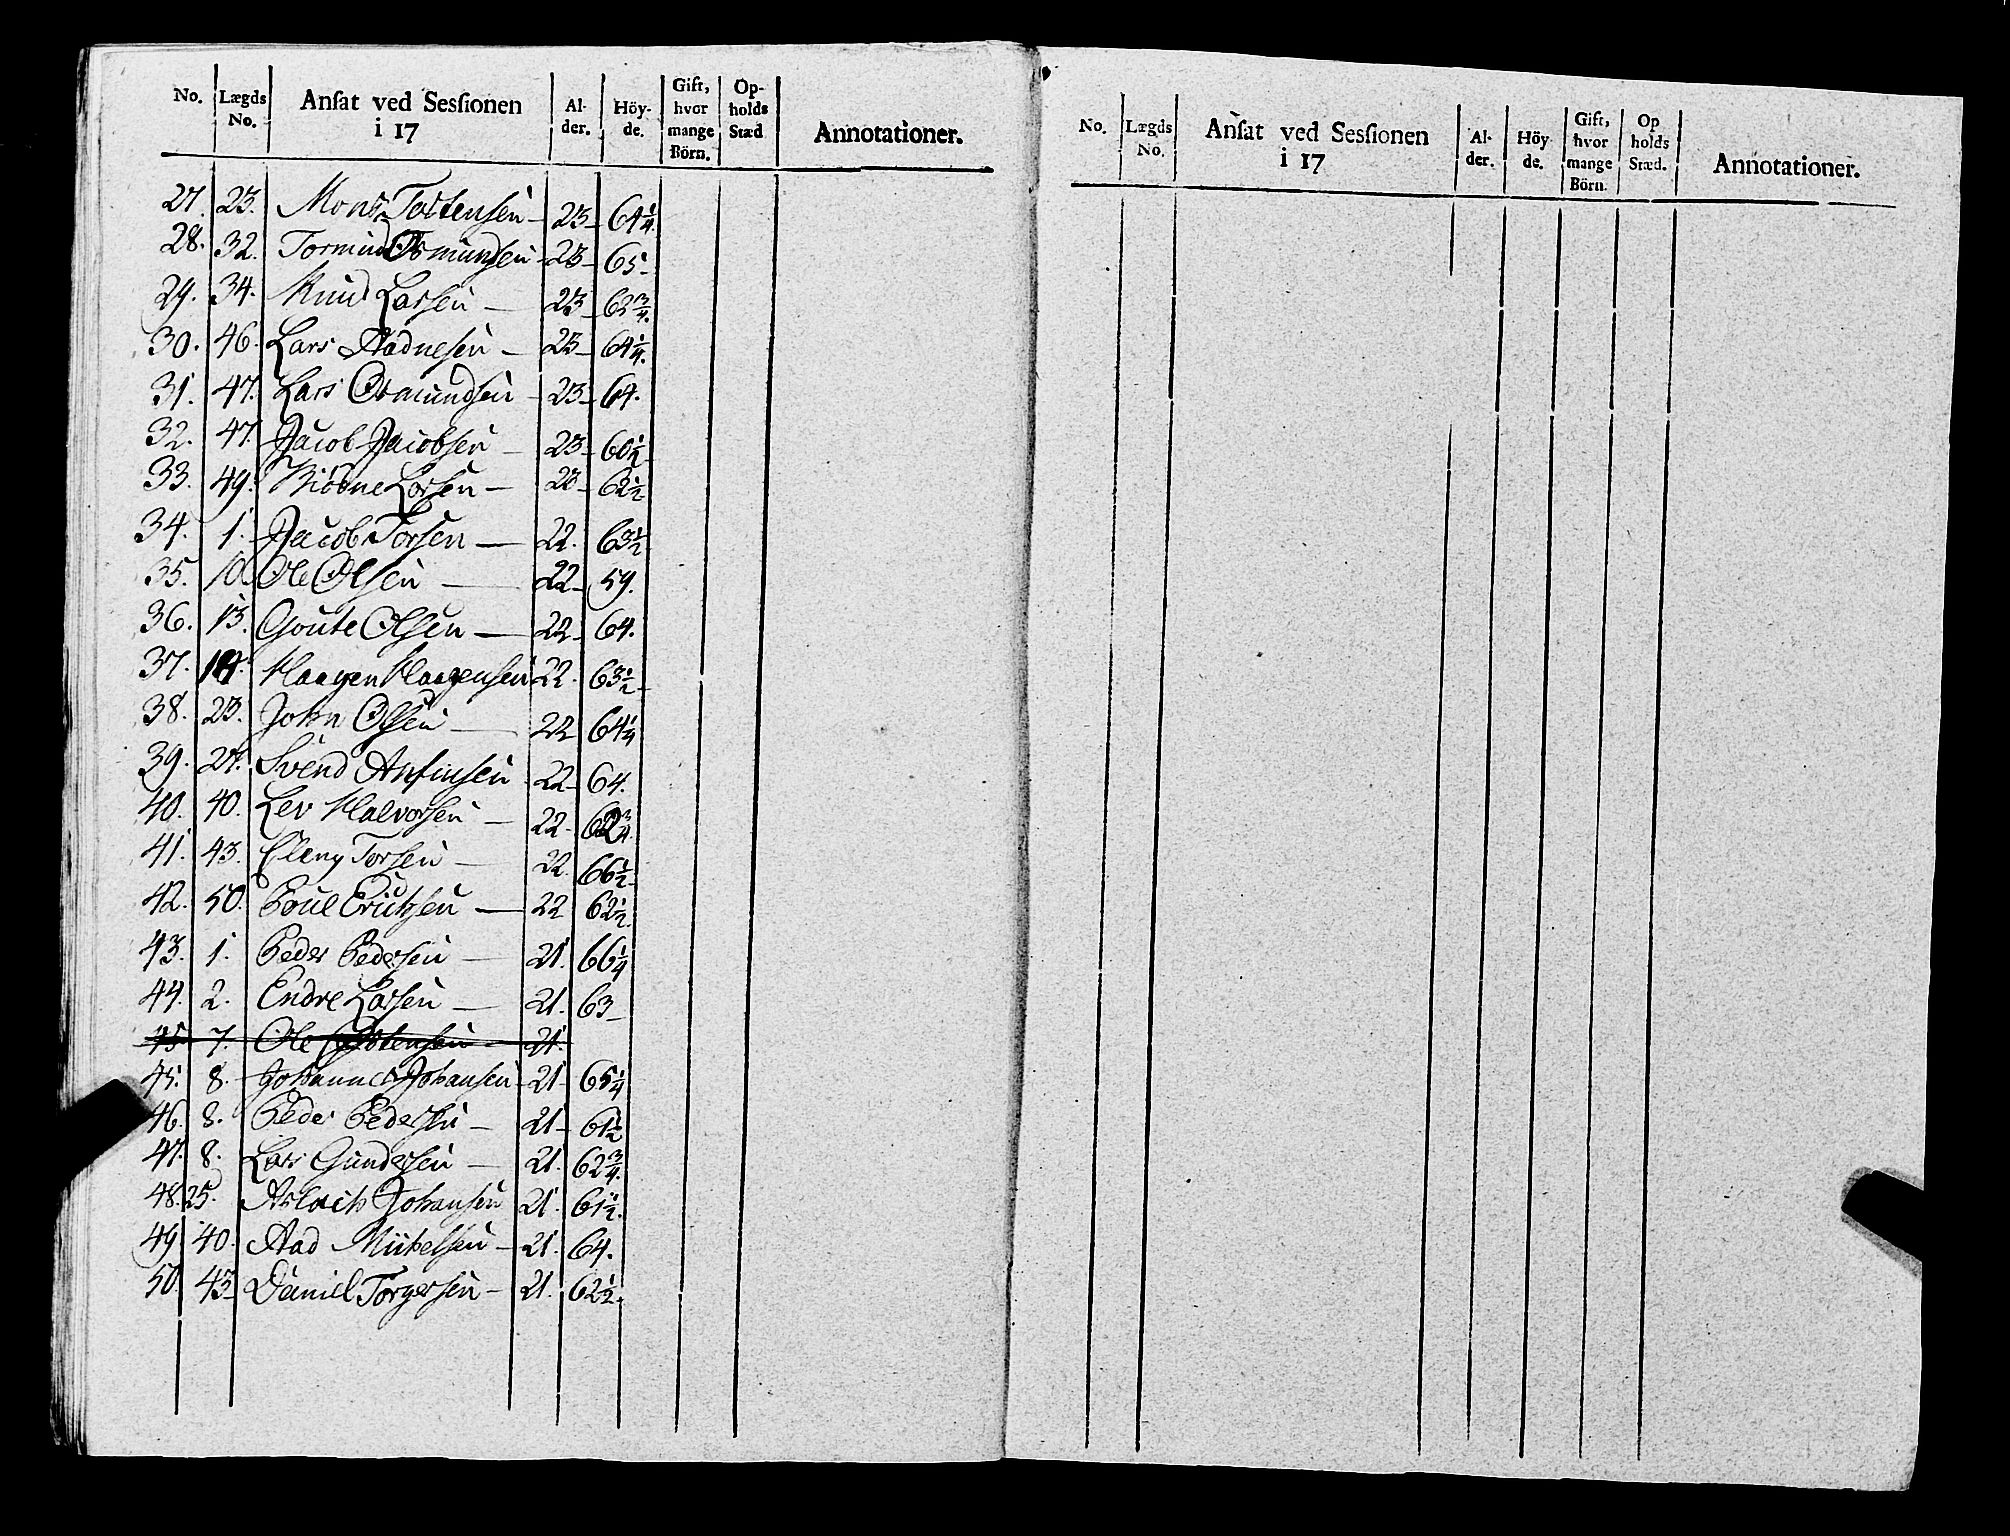 No. Lægds No. Ansat ved Sessionen i 17 Al-der. Höy-de. Gift, hvor mange Börn. Op-holds Stæd Annotationer.
27. 23. Mons Tostensen – 23 – 64 1/4.
28. 32. Tormund Osmundsen – 23 – 65 –
29. 34. Knud Larsen – 23 – 62 3/4.
30. 46. Lars Aadnesen – 23 – 64 1/4.
31. 47. Lars Osmundsen – 23 – 64.
32. 47. Jacob Jacobsen – 23 – 60 1/2
33. 49. Larsen – 23 – 62 1/2
34. 1. Jacob Torsen — 22. 63 1/2
35. 10. Ole Olsen — 22 – 59.
36. 13. Goute Olsen — 22 – 64.
37. Haagen Haagensen 22. 63 1/2 –
38. 23. John Olsen — 22 64 1/4
39. 24. Svend Anfinsen – 22 – 64.
40. 40. Lev Halvorsen – 22 – 62 3/4.
41. 43. Eleng Torsen — 22. 66 1/2 –
42. 50. Poul Erichsen — 22 62 1/2.
43. 1. Peder Pedersen — 21. 66 1/4
44. 2. Endre Larsen — 21. 63 –
45 7. Ole – 21.
45. 8. Johannes Johansen – 21 – 65 1/4
46. 8. Peder Pedersen – 21 – 61 1/2
47. 8. Lars Gundersen — 21. 62 3/4.
48. 25. Aslach Johansen 21. 61 1/2.
49 40. Aad Michelsen – 21. 64.
50. 43 – Daniel Torgersen – 21. 62 1/2.
No. Lægds No. Ansat ved Sessionen i 17 Al-der. Höy-de. Gift, hvor mange Börn. Op holds Stæd. Annotationer.